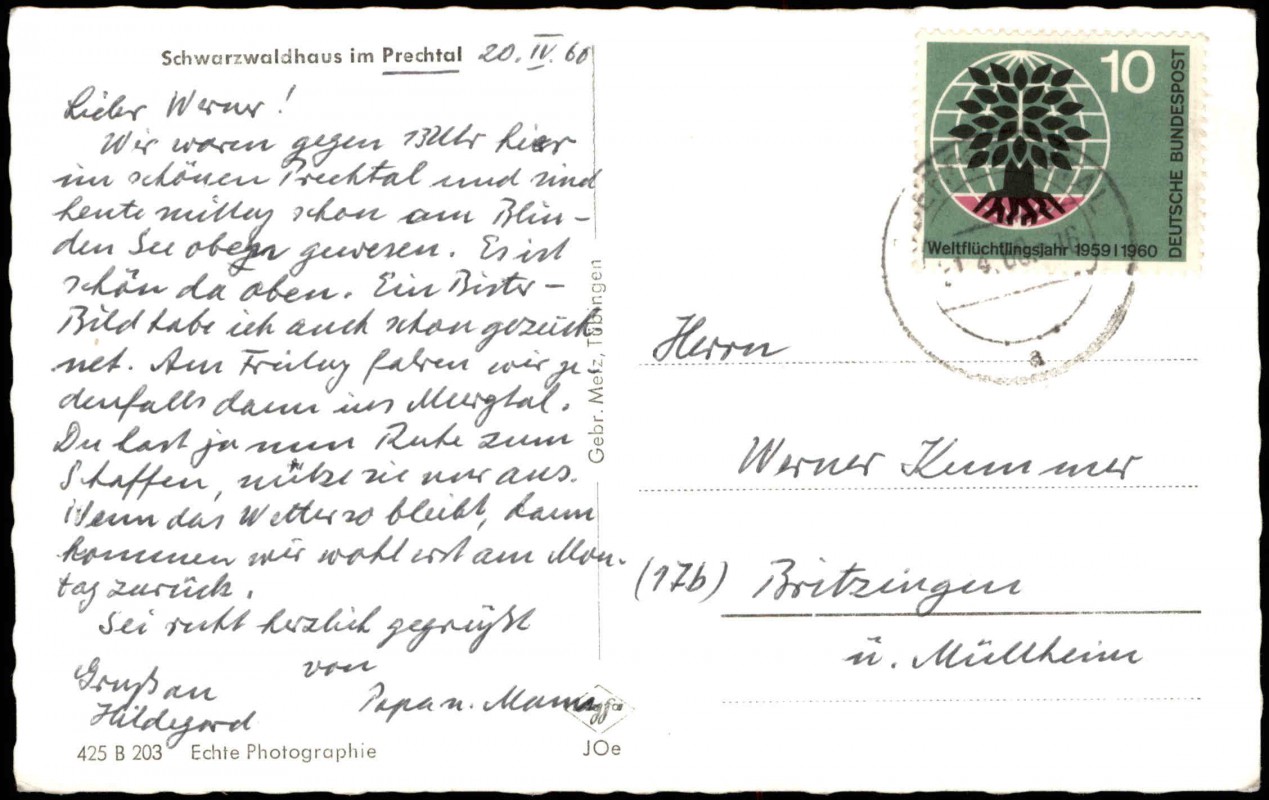 Schwarzwaldhaus im Prechtal 20. IV. 60
Lieber Werner!
Wir waren gegen 13 Uhr hier
im schönen Prechtal und sind
heute mittag schon am Blin-
den See oben gewesen. Es ist
schön da oben. Ein Bister-
Bild habe ich auch schon gezeich
net. Am Freitag fahren wir je-
denfalls dann ins Murgtal.
Du hast ja nun Ruhe zum
Schaffen, nütze sie nur aus.
Wenn das Wetter so bleibt, dann
kommen wir wohl erst am Mon-
tag zurück.
Sei recht herzlich gegrüßt
von
Papa u. Mama
Gruß an
Hildegard
425 B 203 Echte Photographie
Gebr. Metz, Tübingen
Agfa
JOe
10
DEUTSCHE BUNDESPOST
Weltflüchtlingsjahr 1959|1960
a
Herrn
Werner Kummer
(17b) Britzingen
ü. Müllheim